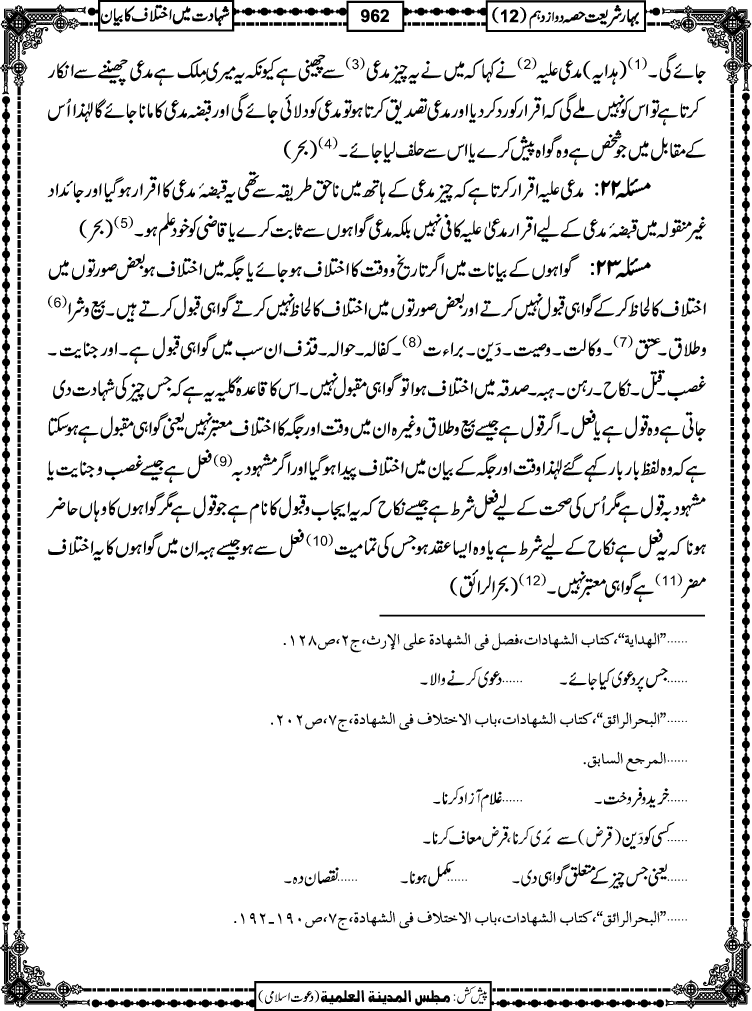 بہارِ شریعت حصہ دوازدہم (12)
962
شہادت میں اختلاف کا بیان
جائے گی۔(1) (ہدایہ) مدعی علیہ(2) نے کہا کہ میں نے یہ چیز مدعی(3) سے چھینی ہے کیونکہ یہ میری مِلک ہے مدعی چھیننے سے انکار
کرتا ہے تو اس کو نہیں ملے گی کہ اقرار کو رد کر دیا اور مدعی تصدیق کرتا ہو تو مدعی کو دلائی جائے گی اور قبضہ مدعی کا مانا جائے گا لہٰذا اُس
کے مقابل میں جو شخص ہے وہ گواہ پیش کرے یا اس سے حلف لیا جائے۔(4) (بحر)
مسئلہ ۲۲: مدعی علیہ اقرار کرتا ہے کہ چیز مدعی کے ہاتھ میں ناحق طریقہ سے تھی یہ قبضۂ مدعی کا اقرار ہو گیا اور جائداد
غیر منقولہ میں قبضۂ مدعی کے لیے اقرار مدعیٰ علیہ کافی نہیں بلکہ مدعی گواہوں سے ثابت کرے یا قاضی کو خود علم ہو۔(5) (بحر)
مسئلہ ۲۳: گواہوں کے بیانات میں اگر تاریخ و وقت کا اختلاف ہو جائے یا جگہ میں اختلاف ہو بعض صورتوں میں
اختلاف کا لحاظ کرکے گواہی قبول نہیں کرتے اور بعض صورتوں میں اختلاف کا لحاظ نہیں کرتے گواہی قبول کرتے ہیں۔ بیع و شرا(6)
و طلاق۔ عتق(7)۔ وکالت۔ وصیت۔ دَین۔ براءت(8)۔ کفالہ۔ حوالہ۔ قذف ان سب میں گواہی قبول ہے۔ اور جنایت۔
غصب۔ قتل۔ نکاح۔ رہن۔ ہبہ۔ صدقہ میں اختلاف ہوا تو گواہی مقبول نہیں۔ اس کا قاعدۂ کلیہ یہ ہے کہ جس چیز کی شہادت دی
جاتی ہے وہ قول ہے یا فعل۔ اگر قول ہے جیسے بیع و طلاق وغیرہ ان میں وقت اور جگہ کا اختلاف معتبر نہیں یعنی گواہی مقبول ہے ہو سکتا
ہے کہ وہ لفظ بار بار کہے گئے لہٰذا وقت اور جگہ کے بیان میں اختلاف پیدا ہو گیا اور اگر مشہود بہ(9) فعل ہے جیسے غصب و جنایت یا
مشہود بہ قول ہے مگر اُس کی صحت کے لیے فعل شرط ہے جیسے نکاح کہ یہ ایجاب و قبول کا نام ہے جو قول ہے مگر گواہوں کا وہاں حاضر
ہونا کہ یہ فعل ہے نکاح کے لیے شرط ہے یا وہ ایسا عقد ہو جس کی تمامیت(10) فعل سے ہو جیسے ہبہ ان میں گواہوں کا یہ اختلاف
مضر(11) ہے گواہی معتبر نہیں۔(12) (بحرالرائق)
......"الهداية"، كتاب الشهادات، فصل في الشهادة على الإرث، ج٢، ص١٢٨.
......جس پر دعویٰ کیا جائے۔ ......دعویٰ کرنے والا۔
......"البحرالرائق"، كتاب الشهادات، باب الاختلاف في الشهادة، ج٧، ص٢٠٢.
......المرجع السابق.
......خرید و فروخت۔ ......غلام آزاد کرنا۔
......کسی کو دَین (قرض) سے بَری کرنا، قرض معاف کرنا۔
......یعنی جس چیز کے متعلق گواہی دی۔ ......مکمل ہونا۔ ......نقصان دہ۔
......"البحرالرائق"، كتاب الشهادات، باب الاختلاف في الشهادة، ج٧، ص١٩٠-١٩٢.
پیش کش: مجلس المدینة العلمیة (دعوت اسلامی)